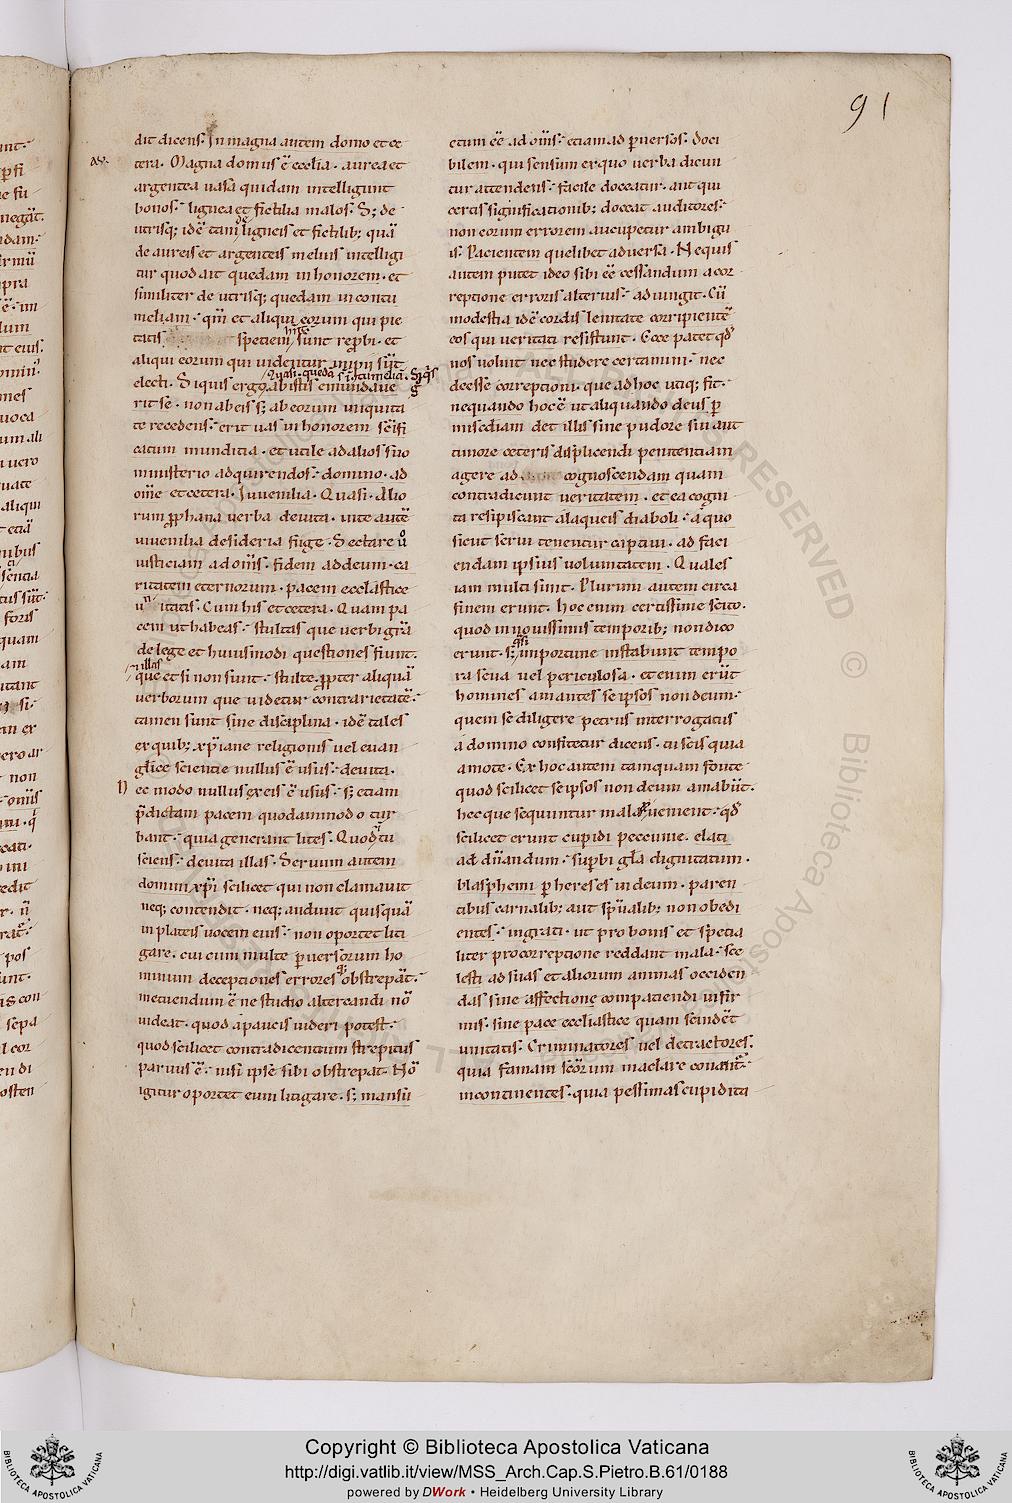 91
dit dicens. In magna autem domo et ce
tera. Magna domus ẽ ecclia. aurea et
argentea uasa quidam intelligunt
bonos. lignea et fictilia malos. S; de
utrisq; idẽ tam de ligneis et fictilib; quã
de aureis et argenteis melius intelligi
tur quod ait quedam in honorem. et
similiter de utrisq; quedam in contu
meliam. qm̃ et aliqui eorum qui pie
tatis speciem sunt repbi. et
aliqui eorum qui uidentur impii sũt
Quasi. queda s̃ i c̃tumelia. Siq̃s
electi. Siquis ergo abistis emundaue
rit se. non abeis s; ab eorum iniquita
te recedens. erit uas in honorem sc̃ifi
catum munditia. et utile ad alios suo
ministerio adquirendos. domino. ad
om̃e et cetera. Iuuenilia. Quasi. Alio
rum pphana uerba deuita. in te autẽ
iuuenilia desideria fuge. Sectare ů
iusticiam ad om̃s. fidem ad deum. ca
ritatem eternorum. pacem ecclastice
unitatis. Cum his et cetera. Quam pa
cem ut habeas. stultas que uerbi grã
de lege et huiusmodi questiones fiunt.
illas
que et si non sunt. stulte. ppter aliquã
uerborum que uidetur contrarietatẽ.
tamen sunt sine disciplina. idẽ tales
ex quib; xp̃iane religionis uel euan
glice scientie nullus ẽ usus. deuita.
N ec modo nullus ex eis ẽ usus. s; etiam
p̃dictam pacem quodammodo tur
bant. quia generant lites. Quod tu
sciens. deuita illas. Seruum autem
domini xp̃i scilicet qui non clamauit
neq; contendit. neq; audiuit quisquã
in plateis uocem eius. non oportet liti
gare. cui cum multe puersorum ho
minum deceptiones errores q; obstrepãt.
metuendum ẽ ne studio altercandi nõ
uideat. quod a paucis uideri potest.
quod scilicet contradicentium strepitus
paruus ẽ. nisi ipse sibi obstrepat. Nõ
igitur oportet eum litigare. s; mansu
etum ẽẽ ad om̃s. etiam ad puersos. doci
bilem. qui sensum ex quo uerba dicun
tur attendens. facile doceatur. aut qui
certis significationib; doceat auditores.
non eorum errorem aucupetur ambigu
is. Pacientem quelibet aduersa. Nequis
autem putet ideo sibi ẽẽ cessandum a cor
reptione erroris alterius. adiungit. Cũ
modestia idẽ cordis lenitate corripientẽ
eos qui ueritati resistunt. Ecce patet qd̃
nos uoluit nec studere certamini. nec
deesse correptioni. que ad hoc utiq; fit.
nequando hoc ẽ ut aliquando deus p
misc̃diam det illis sine pudore siu aut
timore ceteris displicendi penitentiam
agere ad cognoscendam quam
contradicunt ueritatem. et ea cogni
ta resipiscant a laqueis diaboli. a quo
sicut serui tenentur captiui. ad faci
endam ipsius uoluntatem. Quales
iam multi sunt. Plurimi autem circa
finem erunt. hoc enim certissime scito.
quod in nouissimis temporib; non dico
erunt. s; q̃si importune instabunt tempo
ra seua uel periculosa. et enim erũt
homines amantes se ipsos non deum.
quem se diligere petrus interrogatus
a domino confitetur dicens. tu scis quia
amo te. Ex hoc autem tamquam fonte
quod scilicet se ipsos non deum amabũt.
hec que sequuntur mala puenient. qd̃
scilicet erunt cupidi pecunie. elati
ad dñandum. supbi gla dignitatum.
blasphemi p hereses in deum. paren
tibus carnalib; aut sp̃ualib; non obedi
entes. ingrati. ut pro bonis et specia
liter pro correptione reddant mala. sce
lesti ad suas et aliorum animas occiden
das sine affectione compatiendi infir
mis. sine pace eccliastice quam scindẽt
unitatis. Criminatores uel detractores.
quia famam sc̃orum maclare
incontinentes. quia pessimas cupidita
Copyright © Biblioteca Apostolica Vaticana
http://digi.vatlib.it/view/MSS_Arch.Cap.S.Pietro.B.61/0188
powered by DWork • Heidelberg University Library